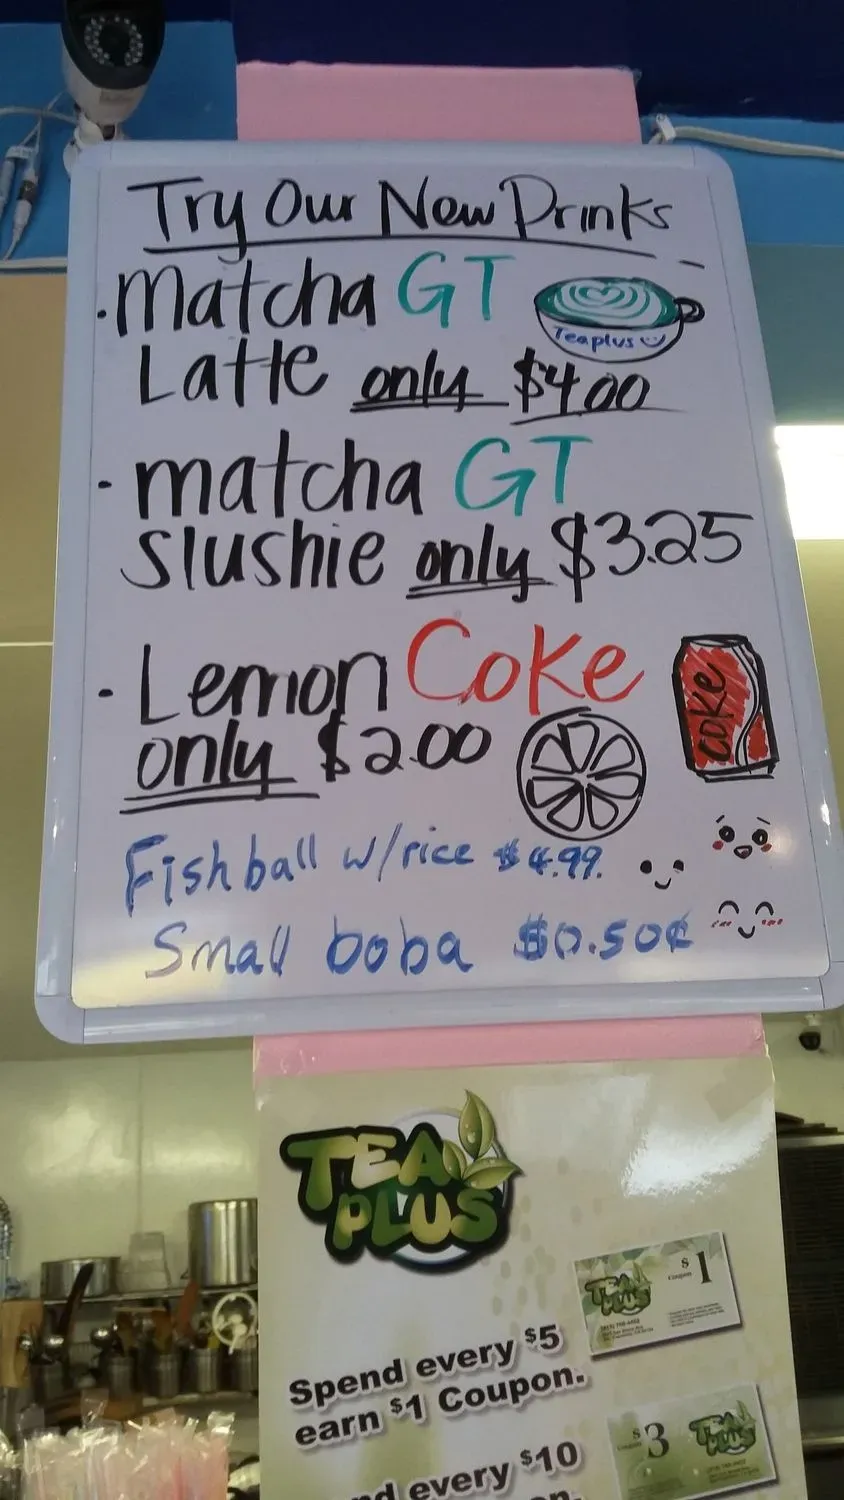 Try Our New Drinks
· matcha GT
Latte only $4.00
Teaplus
· matcha GT
slushie only $3.25
· Lemon Coke
only $2.00
coke
Fishball w/rice $4.99.
Small boba $0.50¢
TEA
PLUS
$1
Coupon
TEA
PLUS
Spend every $5
earn $1 Coupon.
$3
Coupon
TEA
PLUS
every $10